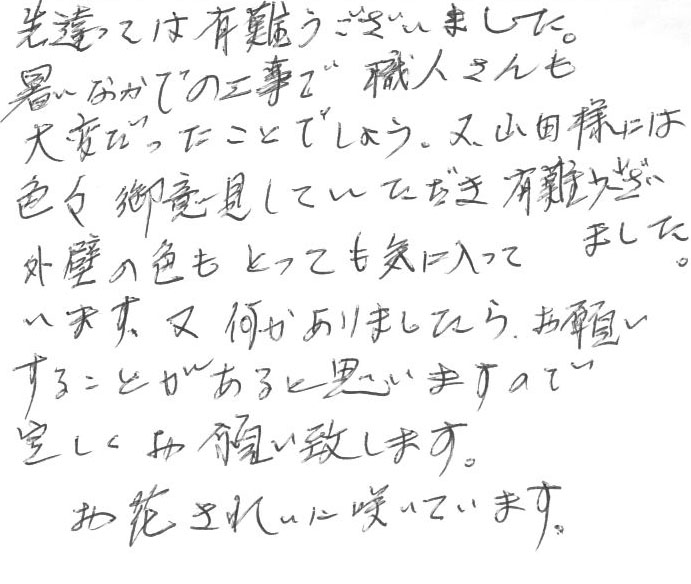 先達っては有難うございました。
暑いなかでの工事で職人さんも
大変だったことでしょう。又、山田様には
色々御意見していただき有難うござい
ました。
外壁の色もとっても気に入って
います。又何かありましたら、お願い
することがあると思いますので
宜しくお願い致します。
お花きれいに咲いています。